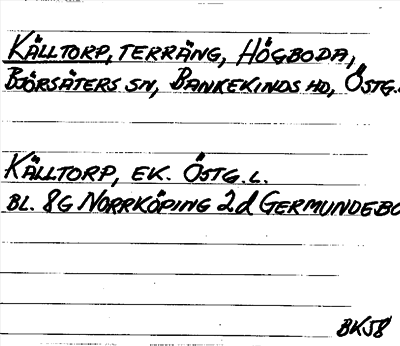 KÄLLTORP, TERRÄNG, HÖGBODA,
BJÖRSÄTERS SN, BANKEKINDS HD, ÖSTG.
KÄLLTORP, EK. ÖSTG.L.
BL. 8G NORRKÖPING 2d GERMUNDEBO
BK58